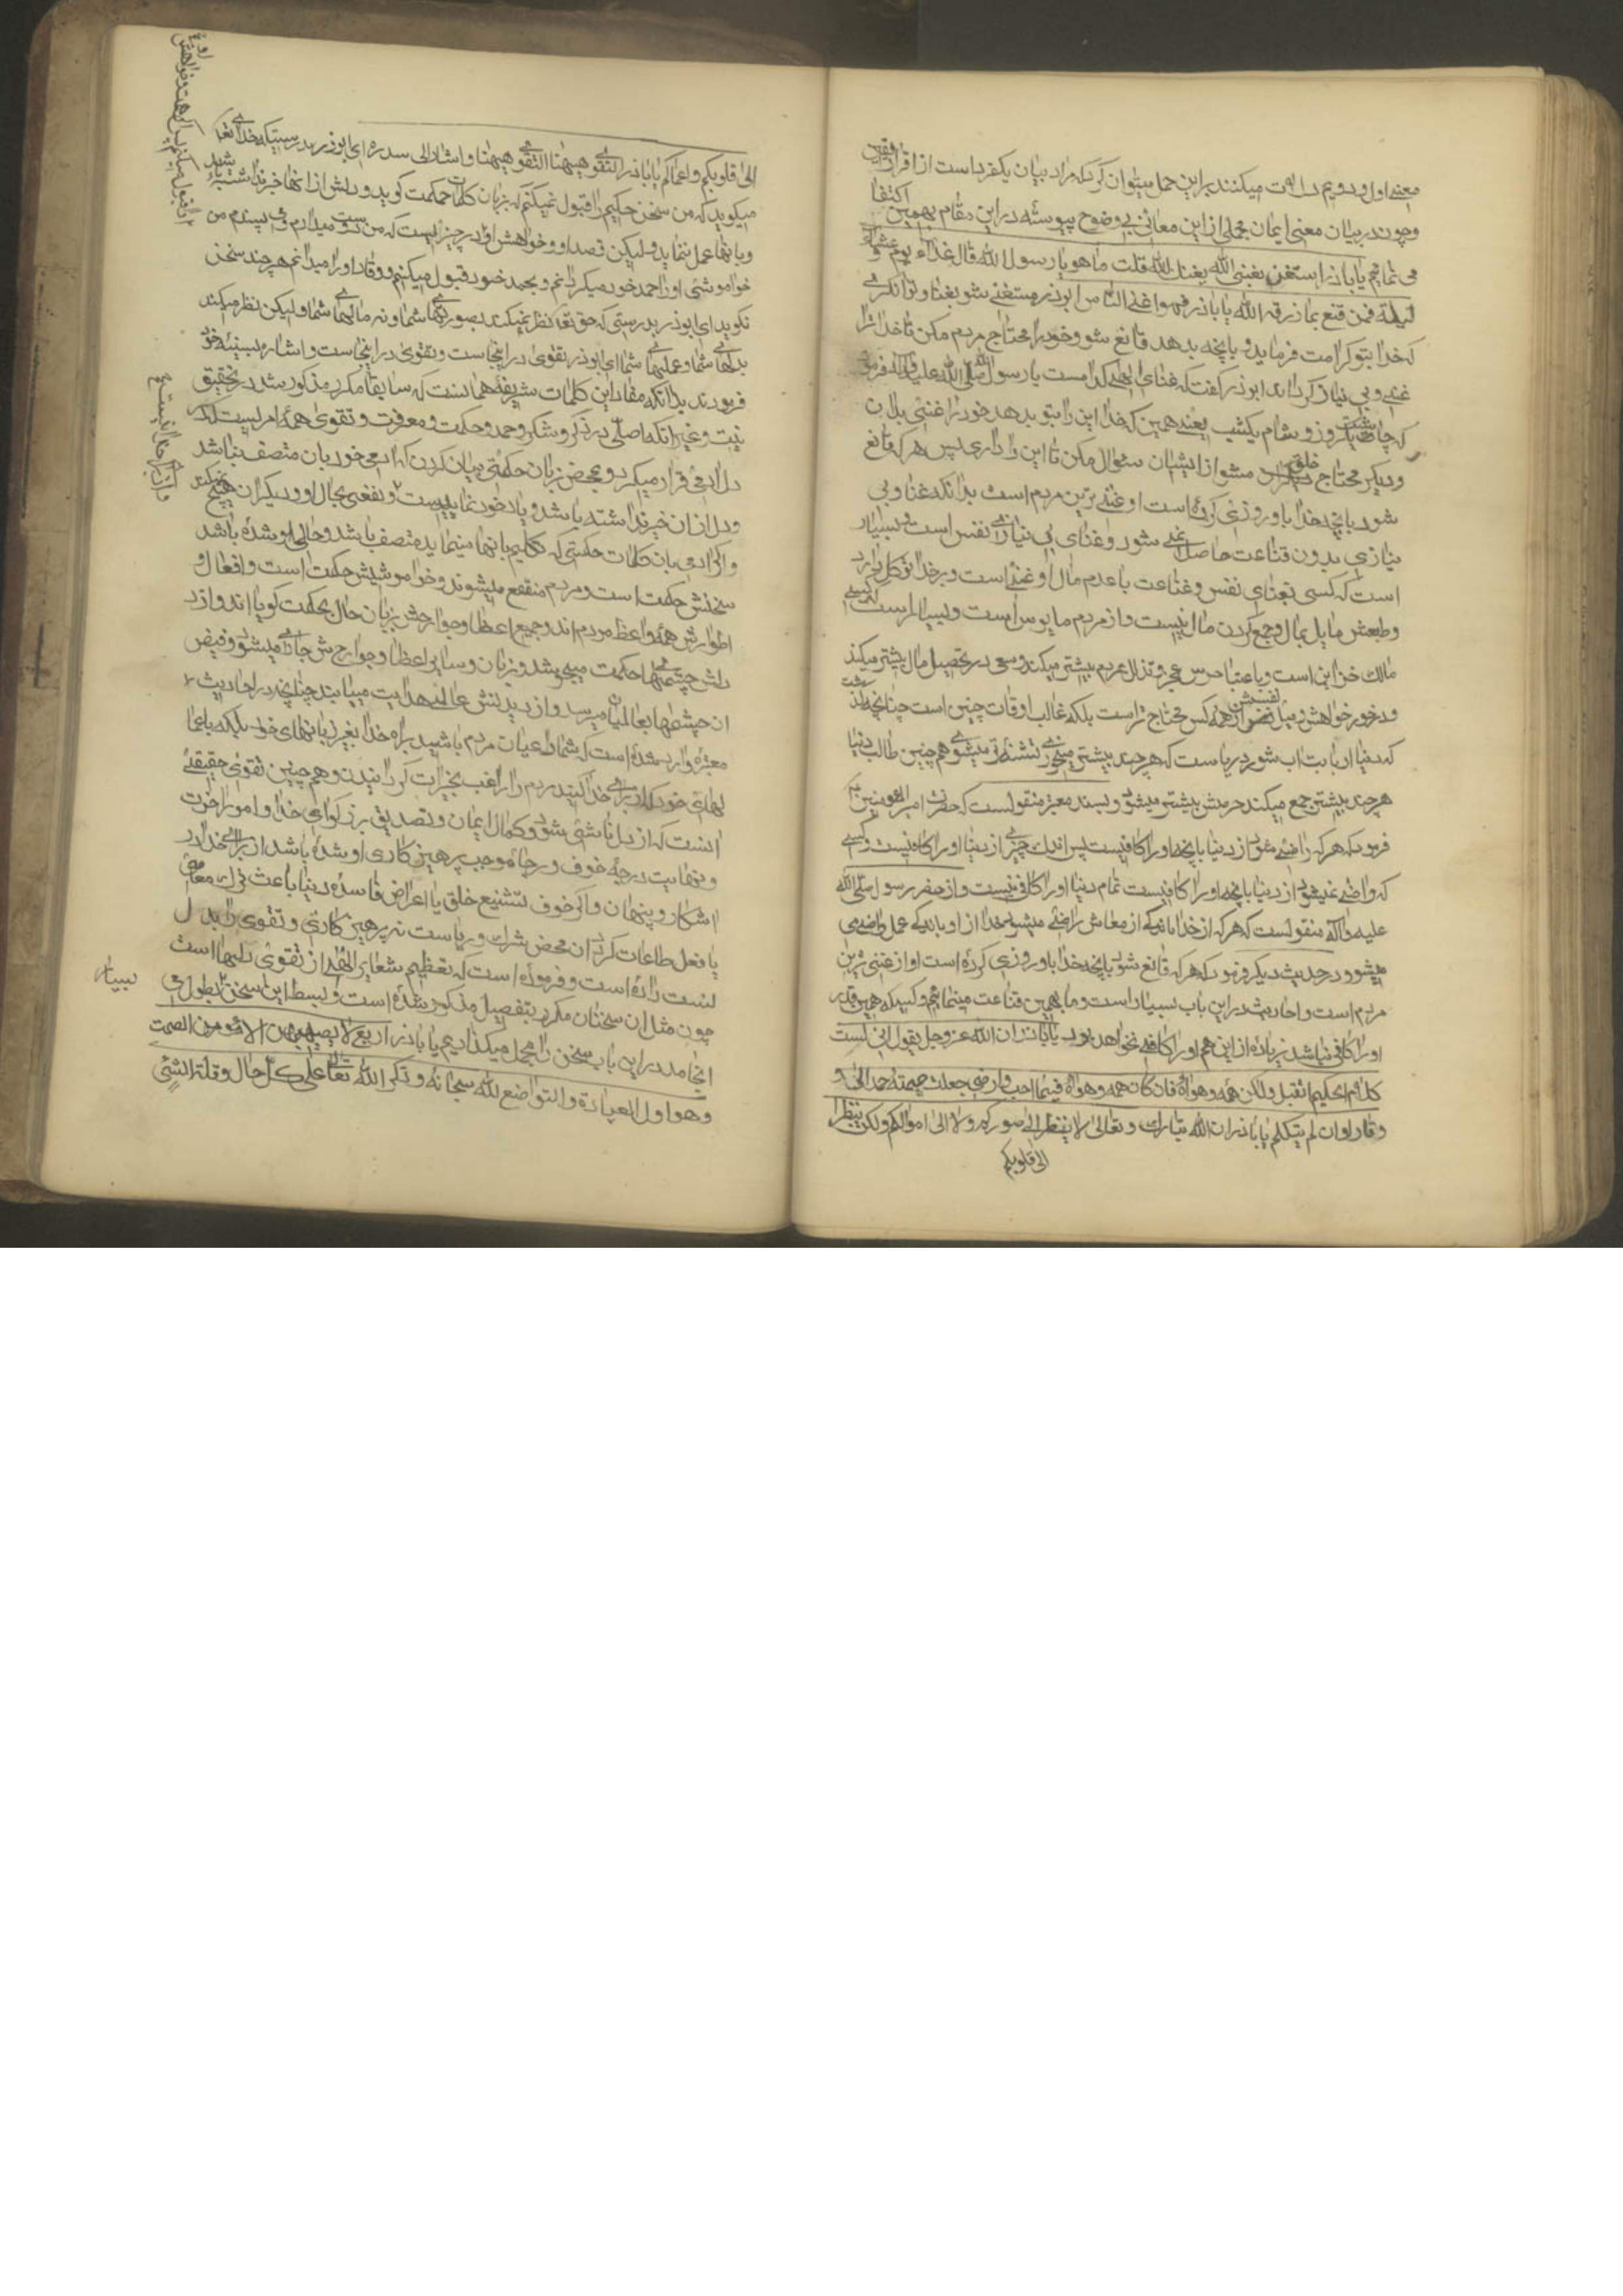 معنی اول و دویم دلالت میکنند بر این حمل میتوان کرد که مراد بیان یکفرد است از افراد یقین
و چون در بیان معنی ایمان مجملی از این معانی بوضوح پیوسته در این مقام بهمین اکتفا
می نمائیم یا باذر استغن بغنی الله یغنک الله قلت ما هو یا رسول الله قال غذاء یوم و عشاء
لیلة فمن قنع بما رزقه الله یا باذر فهو اغنی الناس ای ابوذر مستغنی شو بغنا و توانگری
که خدا بتو کرامت فرماید و بآنچه بدهد قانع شو و خود را محتاج مردم مکن تا خدا ترا
غنی و بی نیاز گرداند ابوذر گفت که غنای الهی کدامست یا رسول الله صلی الله علیه و آله فرمود
که چاشت یکروز و شام یکشب یعنی همین که خدا این را بتو بدهد خود را غنی بدان
و دیگر محتاج خلق مشو از ایشان سئوال مکن تا این را داری پس هر که قانع
شود بآنچه خدا باو روزی کرده است او غنی ترین مردم است بدانکه غنا و بی
نیازی بدون قناعت حاصل نمی شود و غنای بی نیازی نفس است و بسیار
است که کسی بغنای نفس و قناعت با عدم مال او غنی است و بر خدا توکل دارد
و طبعش مایل بمال و جمع کردن مال نیست و از مردم مایوس است و بسیار است که کسی
مالک خزاین است و باعتبار حرص عجز و تذلل بمردم بیشتر میکند و سعی در تحصیل مال بیشتر میکند
و در خور خواهش و میل نفسش از همه کس محتاج تر است بلکه غالب اوقات چنین است چنانچه گذشت
که دنیا از بابت آب شور دریاست که هر چند بیشتر میخوری تشنه تر میشوی همچنین طالب دنیا
هر چند بیشتر جمع میکند حرصش بیشتر میشود و بسند معتبر منقولست که حضرت امیر المؤمنین
فرمود که هر که راضی شود از دنیا بآنچه او را کافیست پس اندک چیزی از دنیا او را کافیست و کسی
که راضی نمیشود از دنیا بآنچه او را کافیست تمام دنیا او را کافی نیست و از حضرت رسول صلی الله
علیه و آله منقولست که هر که از خدا باندکی از معاش راضی میشود خدا از او باندکی عمل راضی
میشود و در حدیث دیگر فرمود که هر که قانع شود بآنچه خدا باو روزی کرده است او از غنی ترین
مردم است و احادیث در این باب بسیار است و ما بهمین قناعت مینمائیم و کسی که همین قدر
او را کافی نباشد زیاده از این هم او را کافی نخواهد بود یا باذر ان الله عز و جل یقول انی لست
کلام الحکیم اتقبل ولکن همه و هواه فان کان همه و هواه فیما احب و ارضی جعلت صمته حمدا لی و
وقارا وان لم یتکلم یا باذر ان الله تبارک و تعالی لا ینظر الی صورکم ولا الی اموالکم ولکن ینظر
الی قلوبکم
الی قلوبکم و اعمالکم یا باذر التقوی هیهنا التقوی هیهنا و اشار الی صدره ای ابوذر بدرستیکه خدای تعالی
میگوید که من سخن حکیم را قبول نمیکنم که بزبان کلمات حکمت گوید و دلش از آنها خبر نداشته باشد
و بآنها عمل ننماید ولیکن قصد او و خواهش او در چیزیست که من دوست میدارم و می پسندم من
خواموشی او را حمد خود میگردانم و بحمد خود قبول میکنم و وقار او را میدانم هر چند سخن
نگوید ای ابوذر بدرستی که حق تعالی نظر نمیکند بصورتهای شما و نه مالهای شما ولیکن نظر میکند
بدلهای شما و عملهای شما ای ابوذر تقوی در اینجاست و تقوی در اینجاست و اشاره بسینه خود
فرمودند بدانکه مفاد این کلمات شریفه همانست که سابقا مکرر مذکور شد در تحقیق
نیت و غیر آنکه اصل در ذکر و شکر و حمد و حکمت و معرفت و تقوی همه امریست که در
دل آدمی قرار میگیرد و بمحض زبان حکمتی بیان کردن که آدمی خود بان متصف نباشد
و دل از آن خبر نداشته باشد و یاد خود نماید و نفعی بحال او و دیگران هیچ نمیکند
و اگر آدمی بان کلمات حکمتی که تکلیم بانها مینماید متصف باشد و حالی او شده باشد
سخنش حکمت است و مردم منتفع میشوند و خواموشیش حکمت است و افعال و
اطوارش همه واعظ مردم اند و جمیع اعظا و جوارحش بزبان حال بحکمت گویا اند و از
دلش چشمهای حکمت میجوشد و بزبان و سایر اعظا و جوارحش جاری میشود و فیض
آن چشمها بعالمیان میرسد و از دیدنش عالمی هدایت مییابند چنانچه در احادیث
معتبره وارد شده است که شما داعیان مردم باشید براه خدا بغیر زبانهای خود بلکه باعما
لهای خود که از برای خدا کنید مردم را راغب بخیرات گردانیدن و همچنین تقوی حقیقی
آنست که از دل ناشی شود و کمال ایمان و تصدیق بزرگواری خدا و امور آخرت
و بنهایت درجه خوف و رجا موجب پرهیزکاری او شده باشد از برای خدا در
آشکار و پنهان و اگر خوف تشنیع خلق یا اعراض فاسده دنیا باعث ترک معاصی
یا فعل طاعات گردد آن محض شرک و ریاست نه پرهیزکاری و تقوی را بدل
نسبت داده است و فرموده است که تعظیم شعایر الله از تقوی دلهاست
چون مثل ان سخنان مکرر بتفصیل مذکور شده است و بسط این سخن بطول می
انجامد در این باب سخن را مجمل میگذاریم یا باذر اربع لا یصیبهن الا مؤمن الصمت
و هو اول العبادة و التواضع لله سبحانه و ذکر الله تعالی علی کل حال و قلة الشئی
بسیار